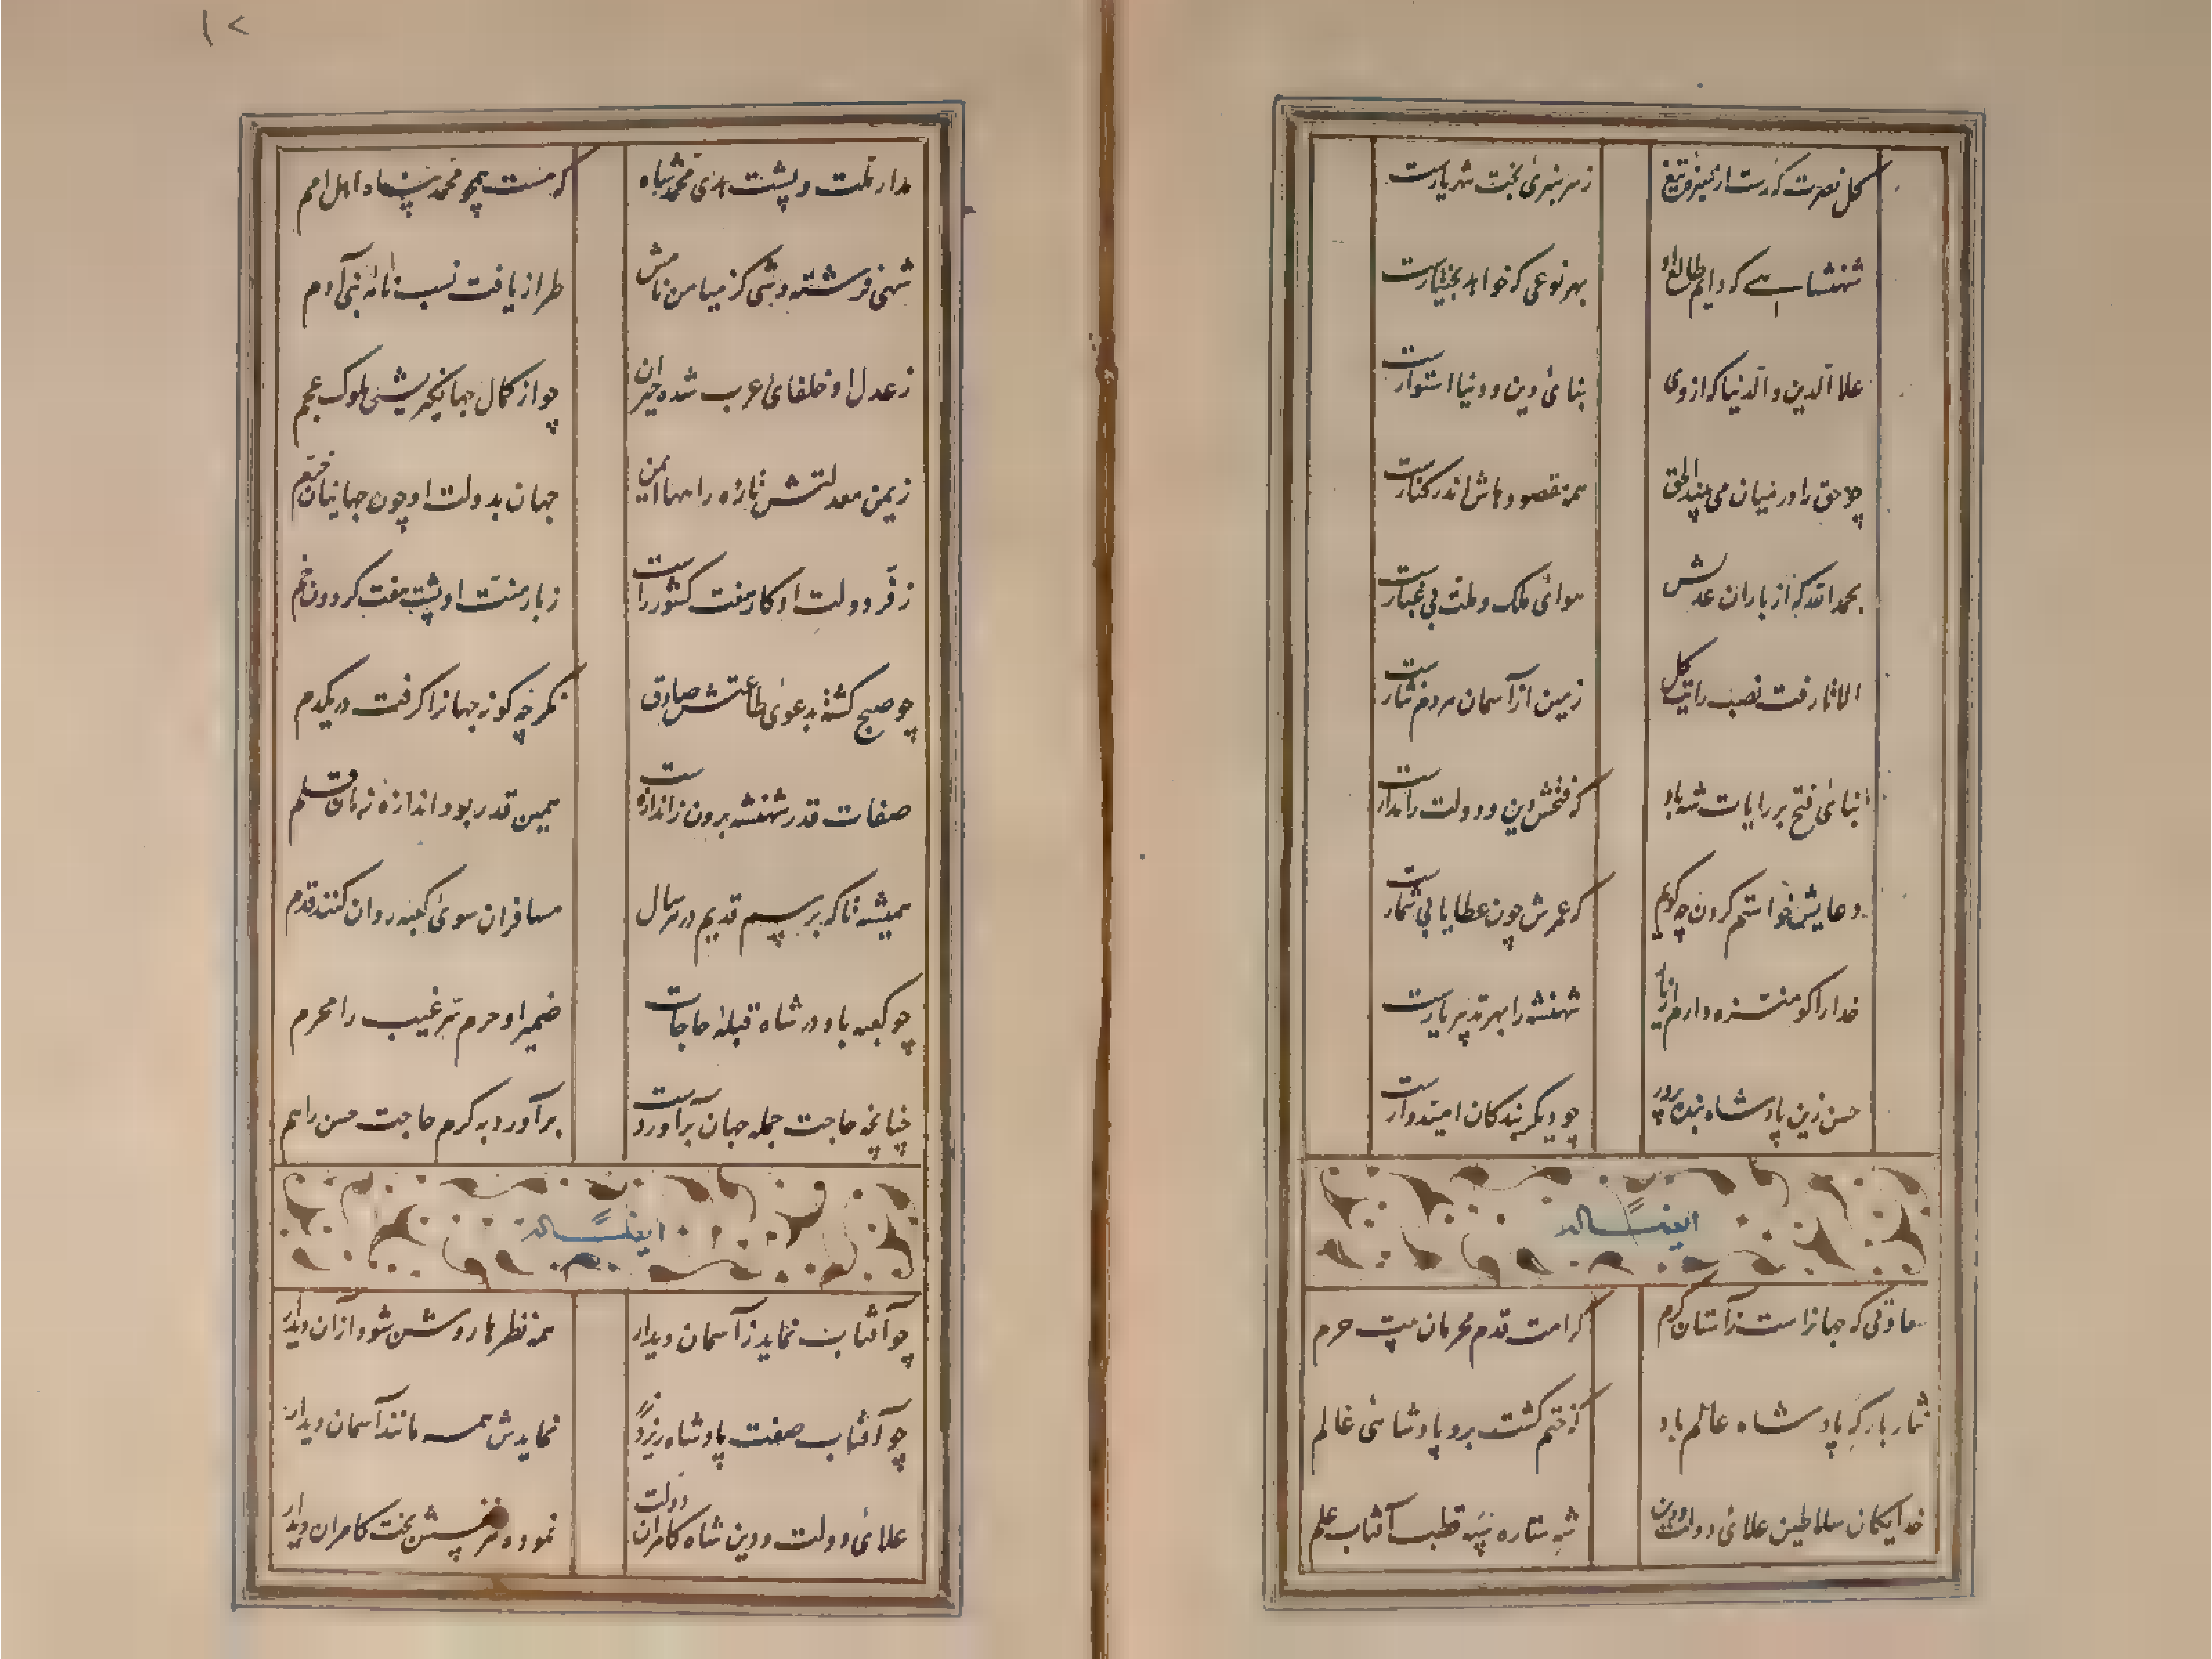 کل نصرت که رست از تیغ زسرسبزی بخت شهریارست
شهنشاهی که دایم طالع او بهر نوعی که خواهد بختیارست
علا الدین و الدنیا که از وی بنای دین و دنیا استوارست
چو حق را در میان می بیند الحق همه مقصودهاش اندر کنارست
بحمدالله که از باران عدلش هوای ملک و ملت بی غبارست
الا تا رفت نصب رایت کل زمین از آسمان مردم نثارست
بنای فتح بر رایات شه باد که فتحش دین و دولت را مدارست
دعایش خواستم کردن چه گویم که عمرش چون عطایا بی شمارست
خدا را کو منزه دارم از یار شهنشه را بهر تدبیر یارست
حسن زین پادشاه بنده پرور چو دیگر بندکان امیدوارست
ایضا له
سعادتی که جهانراست زآستان کرم کرامت قدم محرمان بیت حرم
نثار بارگه پادشاه عالم باد که ختم گشت برو پادشاهی عالم
خدایکان سلاطین علای دولت و دین شه ستاره سپه قطب آفتاب علم
۱۷
مدار ملت و پشت هدی محمد شاه که هست همچو محمد پناه اهل امم
شهی فرشته وشی کز میامن نامش طراز یافت نسب نامه بنی آدم
ز عدل او خلفای عرب شده حیران چو از کمال جهانگیریش ملوک عجم
زیمن معدلتش تازه راهها ایمن جهان بدولت او چون جهانیان خرم
ز فر دولت او کار هفت کشور راست ز بار منت او پشت هفت کردون خم
چو صبح کشته بدعوی طاعتش صادق نکر چه کونه جهانرا کرفت در یکدم
صفات قدر شهنشه برون ز اندازه است همین قدر بود اندازه زبان قلم
همیشه تا که برسم قدیم در هر سال مسافران سوی کعبه روان کنند قدم
چو کعبه باد در شاه قبله حاجات ضمیر او حرم سر غیب را محرم
چنانچه حاجت جمله جهان برآوردست برآورد به کرم حاجت حسن راهم
ایضا له
چو آفتاب نماید ز آسمان دیدار همه نظرها روشن شود از آن دیدار
چو آفتاب صفت پادشاه نمایدش همه مانند آسمان دیدار
علای دولت و دین شاه کامران دولت نموده بخت کامران دیدار